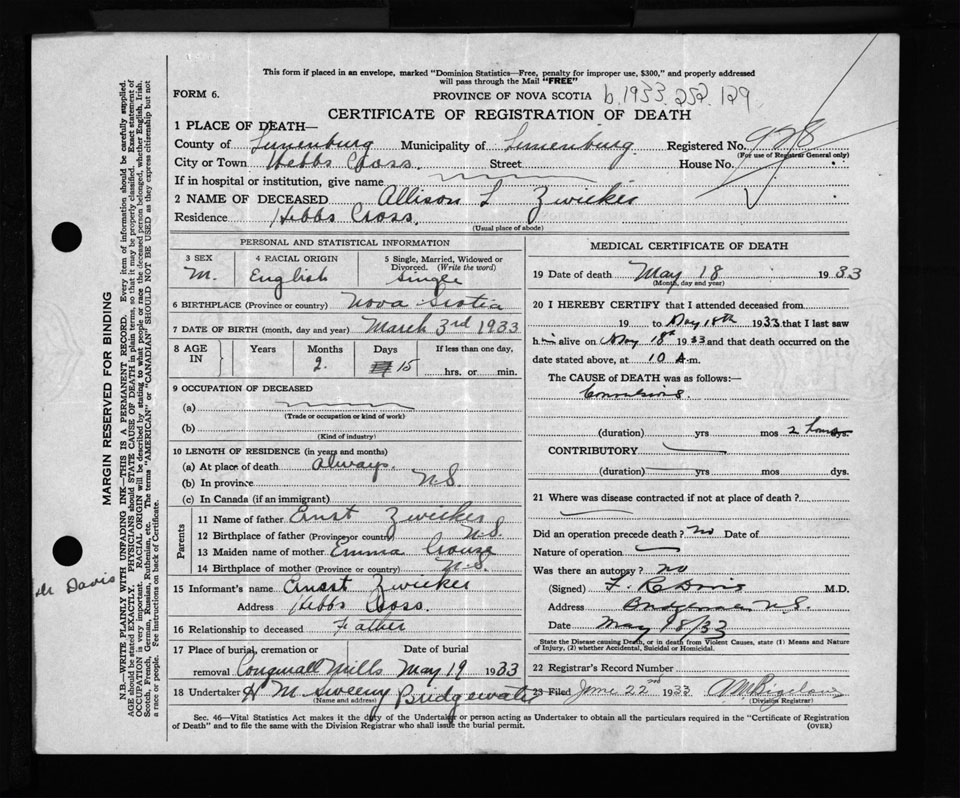 This form if placed in an envelope, marked "Dominion Statistics—Free, penalty for improper use, $300," and properly addressed
will pass through the Mail "FREE"
FORM 6.
PROVINCE OF NOVA SCOTIA b.1933.252.129
CERTIFICATE OF REGISTRATION OF DEATH
1 PLACE OF DEATH—
County of Lunenburg Municipality of Lunenburg Registered No. 928
(For use of Registrar General only)
City or Town Hebbs Cross Street House No.
If in hospital or institution, give name
2 NAME OF DECEASED Allison L Zwicker
Residence Hebbs Cross.
(Usual place of abode)
PERSONAL AND STATISTICAL INFORMATION
3 SEX 4 RACIAL ORIGIN 5 Single, Married, Widowed or
Divorced. (Write the word)
M. English Single
6 BIRTHPLACE (Province or country) Nova Scotia
7 DATE OF BIRTH (month, day and year) March 3rd 1933
8 AGE IN Years Months Days If less than one day,
2. 15 hrs. or min.
9 OCCUPATION OF DECEASED
(a)
(Trade or occupation or kind of work)
(b)
(Kind of industry)
10 LENGTH OF RESIDENCE (in years and months)
(a) At place of death always.
(b) In province N.S.
(c) In Canada (if an immigrant)
Parents
11 Name of father Ernst Zwicker
12 Birthplace of father (Province or country) N.S.
13 Maiden name of mother Emma Crouse
14 Birthplace of mother (Province or country) N.S.
15 Informant's name Ernst Zwicker
Address Hebbs Cross.
16 Relationship to deceased Father
17 Place of burial, cremation or Date of burial
removal Conqurall Mills May 19 1933
18 Undertaker H M Sweeny Bridgewater
(Name and address)
MEDICAL CERTIFICATE OF DEATH
19 Date of death May 18 1933
(Month, day and year)
20 I HEREBY CERTIFY that I attended deceased from
19 to May 18th 1933 that I last saw
him alive on May 18th 1933 and that death occurred on the
date stated above, at 10 A.m.
The CAUSE of DEATH was as follows:—
Convulsions.
(duration) yrs mos 2 hours dys.
CONTRIBUTORY
(duration) yrs mos. dys.
21 Where was disease contracted if not at place of death?
Did an operation precede death? no Date of
Nature of operation
Was there an autopsy? no
(Signed) F. R. Davis M.D.
Address Bridgewater N.S.
Date May 18/33
State the Disease causing Death, or in death from Violent Causes, state (1) Means and Nature
of Injury, (2) whether Accidental, Suicidal or Homicidal.
22 Registrar's Record Number
23 Filed June 22nd 1933
(Division Registrar)
Sec. 46—Vital Statistics Act makes it the duty of the Undertaker or person acting as Undertaker to obtain all the particulars required in the "Certificate of Registration
of Death" and to file the same with the Division Registrar who shall issue the burial permit.
(OVER)
MARGIN RESERVED FOR BINDING
N.B.—WRITE PLAINLY WITH UNFADING INK—THIS IS A PERMANENT RECORD. Every item of information should be carefully supplied.
AGE should be stated EXACTLY. PHYSICIANS should STATE CAUSE OF DEATH in plain terms, so that it may be properly classified. Exact statement of
OCCUPATION is very important. RACIAL ORIGIN will be described by stating to what people or race the deceased person belonged, whether English, Irish,
Scotch, French, German, Russian, Ruthenian, etc. The terms "AMERICAN" or "CANADIAN" SHOULD NOT BE USED as they express citizenship but not
a race or people. Fee instructions on back of Certificate.
Dr Davis